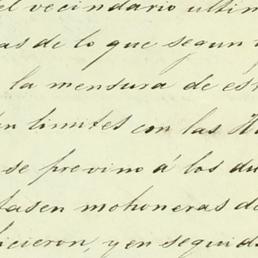 el vecindario ultim
as de lo que segun
la mensura de es
n limites con las
se previno á los du
tasen mohoneras de
icieron, y en seguid